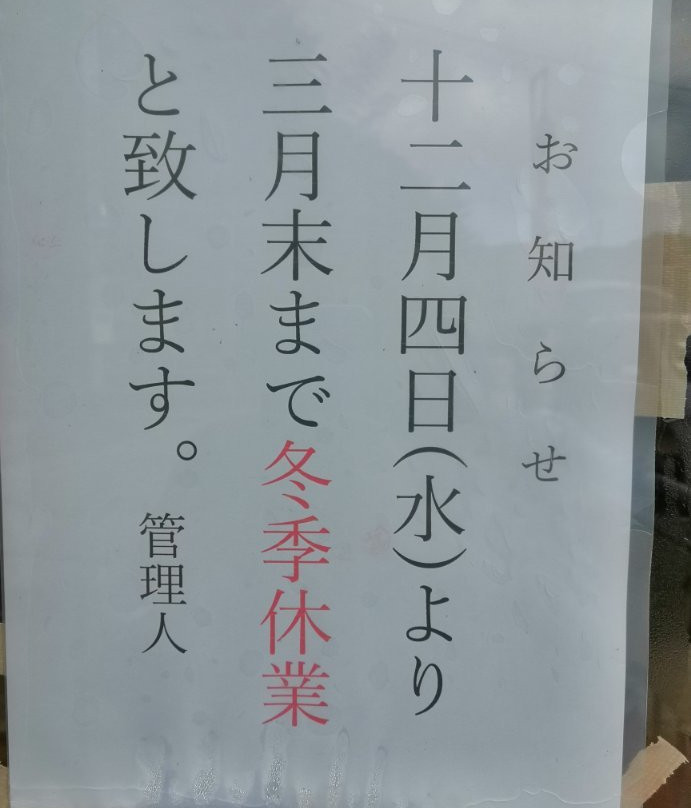 お知らせ
十二月四日(水)より
三月末まで冬季休業
と致します。 管理人